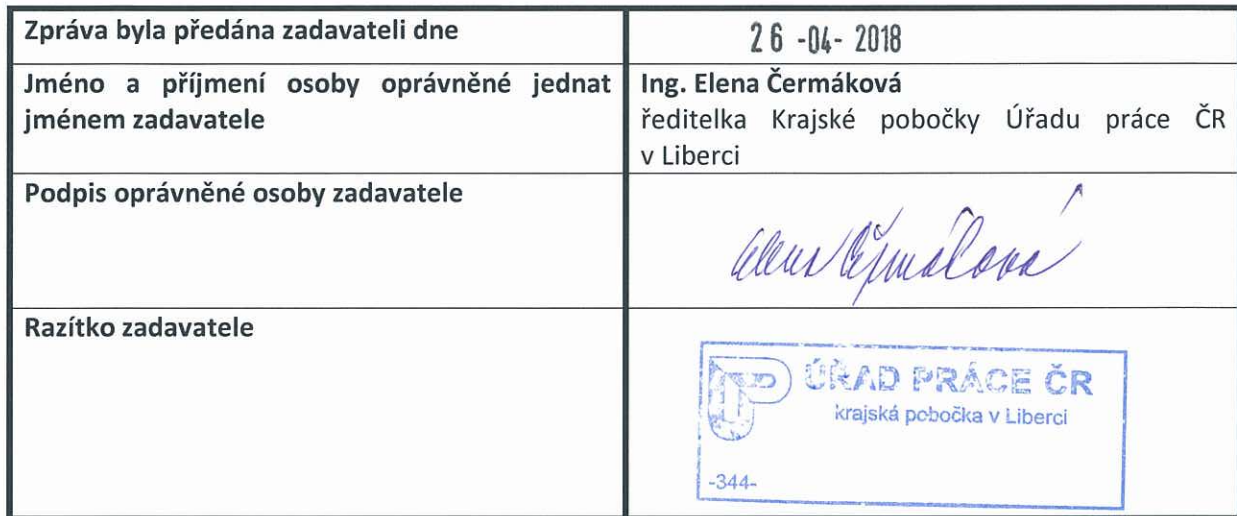 Zpráva byla předána zadavateli dne
26 -04- 2018
Jméno a příjmení osoby oprávněné jednat
jménem zadavatele
Ing. Elena Čermáková
ředitelka Krajské pobočky Úřadu práce ČR
v Liberci
Podpis oprávněné osoby zadavatele
Elena Čermáková
Razítko zadavatele
ÚŘAD PRÁCE ČR
krajská pobočka v Liberci
-344-